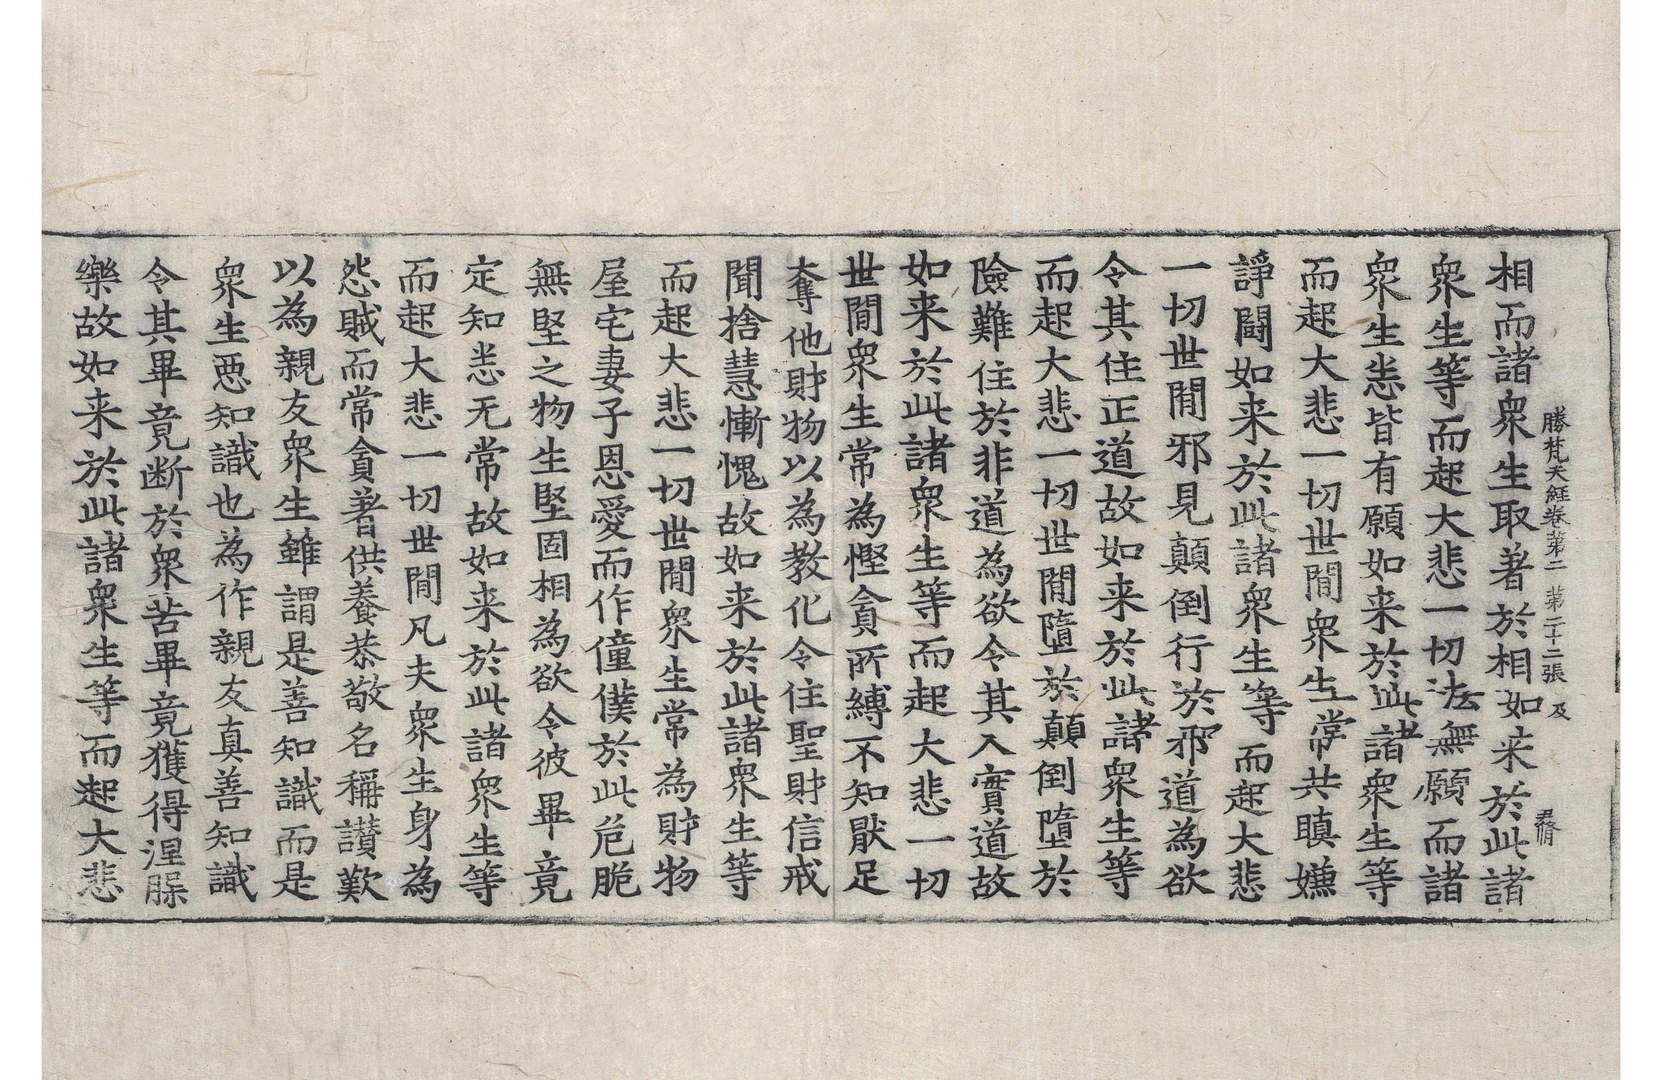 勝梵天經卷第二 第二十二張 及
相而諸衆生取著於相如来於此諸
衆生等而起大悲一切法無願而諸
衆生恙皆有願如来於此諸衆生等
而起大悲一切世閒衆生常共瞋嫌
諍鬪如来於此諸衆生等而起大悲
一切世閒邪見顛倒行於邪道為欲
令其住正道故如来於此諸衆生等
而起大悲一切世閒墮於顛倒墮於
險難住於非道為欲令其入實道故
如来於此諸衆生等而起大悲一切
世閒衆生常為慳貪所縛不知猒足
奪他財物以為教化令住聖財信戒
聞捨慧慚愧故如来於此諸衆生等
而起大悲一切世閒衆生常為財物
屋宅妻子恩愛而作僮僕於此危脆
無堅之物生堅固相為欲令彼畢竟
定知恙无常故如来於此諸衆生等
而起大悲一切世閒凡夫衆生身為
怨賊而常貪著供養恭敬名稱讃歎
以為親友衆生雖謂是善知識而是
衆生惡知識也為作親友真善知識
令其畢竟断於衆苦畢竟獲得涅槃
樂故如来於此諸衆生等而起大悲